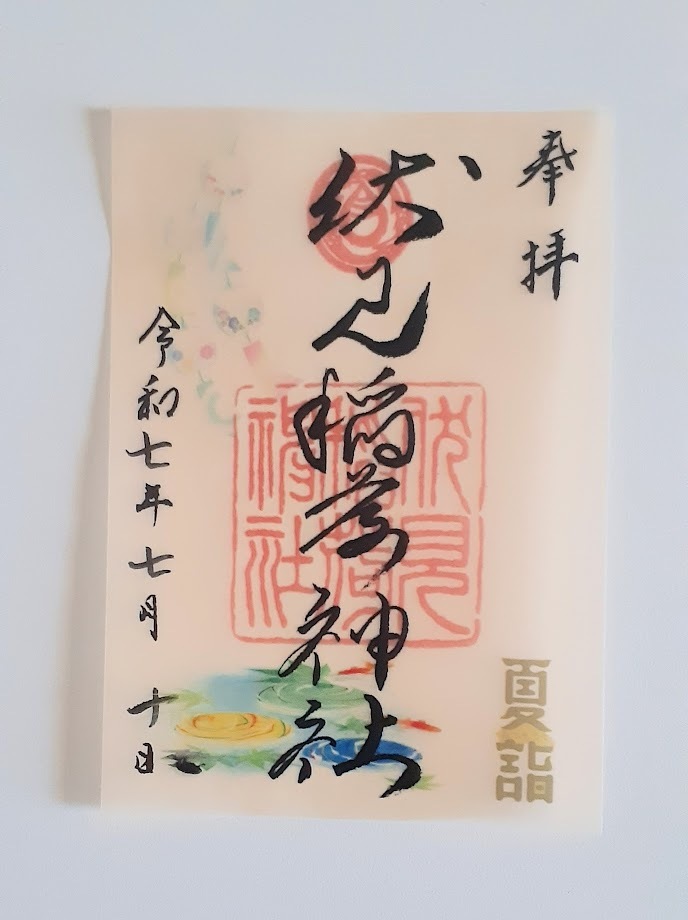 奉拝
伏見稲荷神社
伏見
稲荷
神社
夏詣
令和七年七月十日